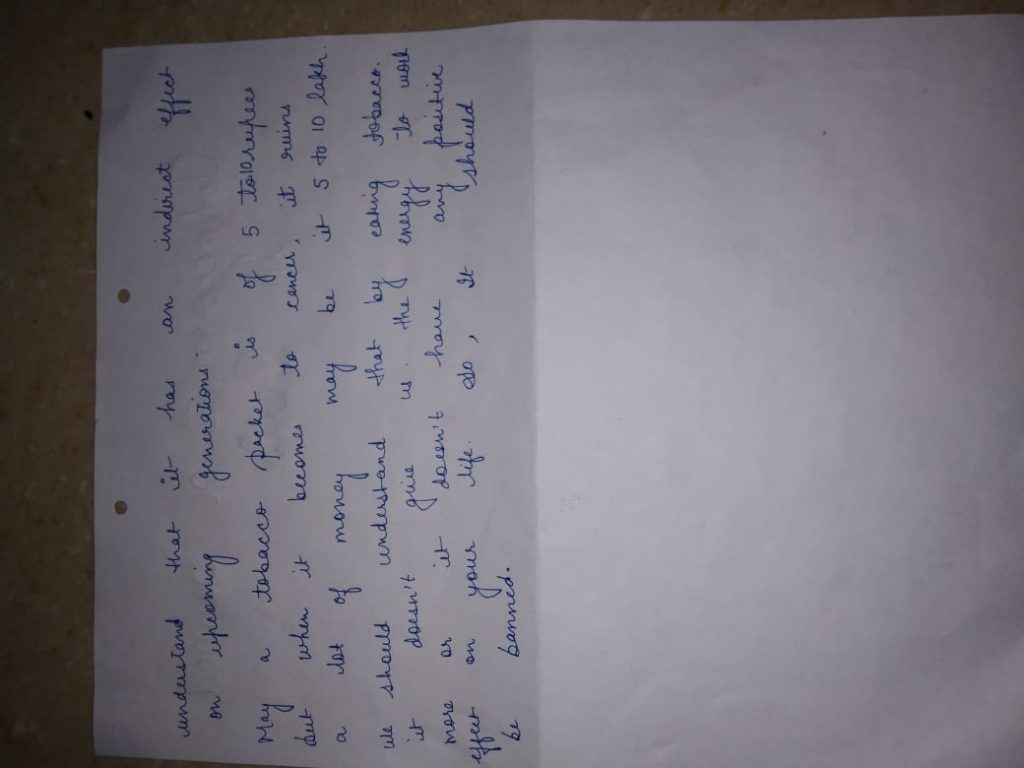 understand that it has an indirect effect
on upcoming generations.
May a tobacco packet is of 5 to 10 rupees
but when it becomes to cancer, it ruins
a lot of money may be it 5 to 10 lakh.
We should understand that by eating tobacco.
it doesn't give us the energy to work
more or it doesn't have any
effect on your life. So, It should
be banned.